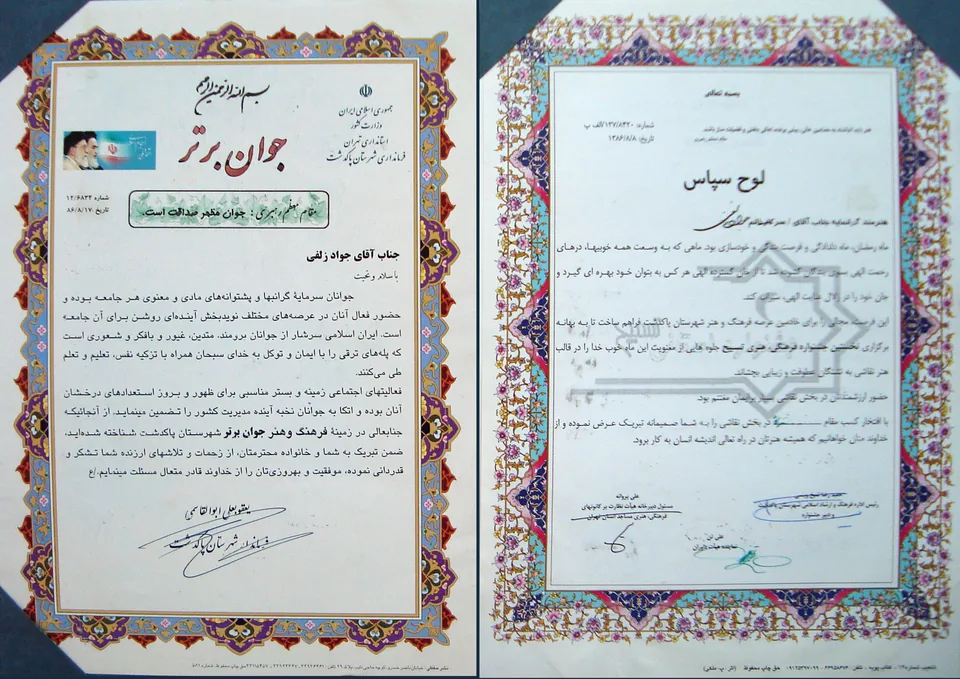 بسم الله الرحمن الرحیم
جمهوری اسلامی ایران
وزارت کشور
استانداری تهران
فرمانداری شهرستان پاکدشت
جوان برتر
شماره ۱۲/۶۸۳۳
تاریخ ۸۶/۸/۱۷
مقام معظم رهبری : جوان مظهر صداقت است.
جناب آقای جواد زلفی
با سلام و تحیت
جوانان سرمایهٔ گرانبها و پشتوانه‌های مادی و معنوی هر جامعه بوده و
حضور فعال آنان در عرصه‌های مختلف نویدبخش آینده‌ای روشن برای آن جامعه
است. ایران اسلامی سرشار از جوانان برومند، متدین، غیور و بافکر و شعوری است
که پله‌های ترقی را با ایمان و توکل به خدای سبحان همراه با تزکیه نفس، تعلیم و تعلم
طی می‌کنند.
فعالیتهای اجتماعی زمینه و بستر مناسبی برای ظهور و بروز استعدادهای درخشان
آنان بوده و اتکا به جوانان نخبه آینده مدیریت کشور را تضمین مینماید. از آنجائیکه
جنابعالی در زمینهٔ فرهنگ و هنر جوان برتر شهرستان پاکدشت شناخته شده‌اید،
ضمن تبریک به شما و خانواده محترمتان، از زحمات و تلاشهای ارزنده شما تشکر و
قدردانی نموده، موفقیت و بهروزی‌تان را از خداوند قادر متعال مسئلت مینمایم./ع
یعقوبعلی ابوالقاسمی
فرماندار شهرستان پاکدشت
بسمه تعالی
شماره: ۱۳۷/۸۴۲۰/الف پ
تاریخ: ۱۳۸۶/۸/۸
لوح سپاس
هنرمند گرانمایه جناب آقای / سرکار خانم
ماه رمضان، ماه دلدادگی و فرصت بندگی و خودسازی بود. ماهی که به وسعت همه خوبیها، درهای
رحمت الهی بسوی بندگان گشوده شد تا از خوان گسترده الهی هر کس به بتوان خود بهره ای گیرد و
جان خود را در زلال عنایت الهی، سیراب کند.
این فرصت مجالی را برای خادمین عرصه فرهنگ و هنر شهرستان پاکدشت فراهم ساخت تا به بهانه
برگزاری نخستین جشنواره فرهنگی، هنری تسبیح جلوه هایی از معنویت این ماه خوب خدا را در قالب
هنر نقاشی به تشنگان عطوفت و زیبایی بچشاند.
حضور ارزشمندتان در بخش نقاشی بسیار برایمان مغتنم بود.
با افتخار کسب مقام در بخش نقاشی را به شما صمیمانه تبریک عرض نموده و از
خداوند منان خواهانیم که همیشه هنرتان در راه تعالی اندیشه انسان به کار برود.
رئیس اداره فرهنگ و ارشاد اسلامی شهرستان پاکدشت
و دبیر جشنواره
علی پروانه
مسئول دبیرخانه هیأت نظارت بر کانونهای
فرهنگی، هنری مساجد استان تهران
نماینده هیأت داوران